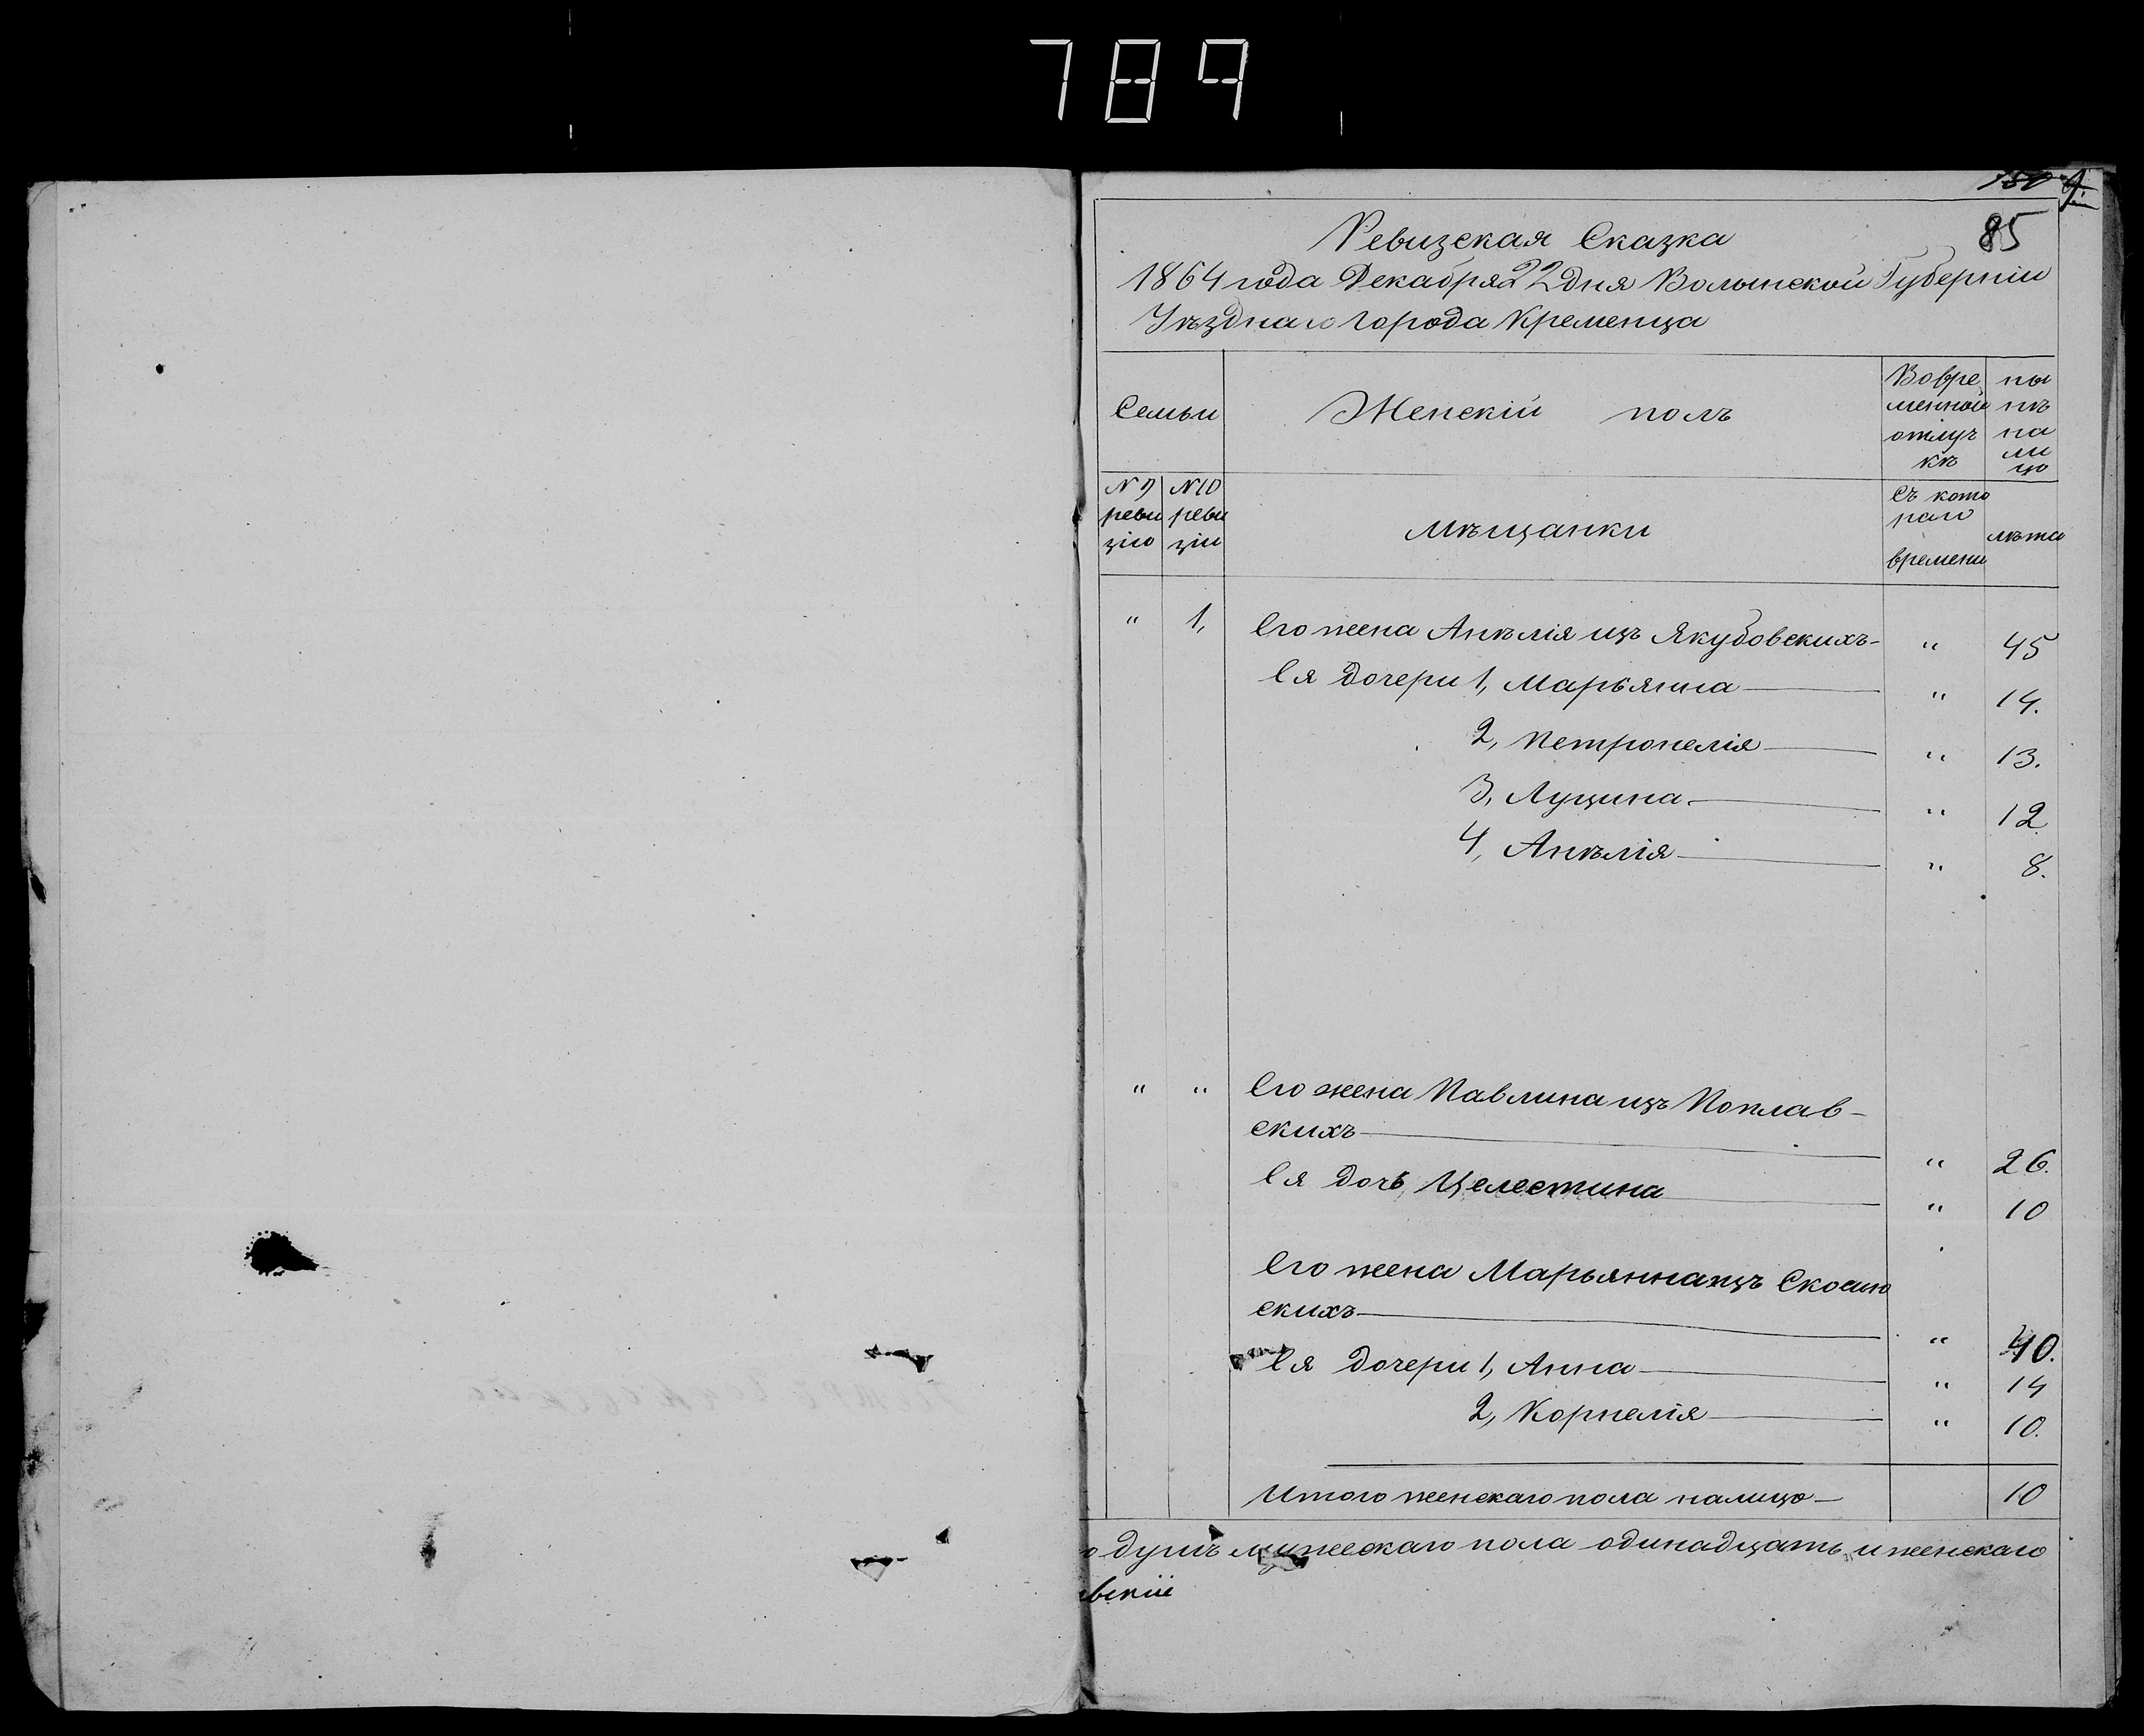 789
85
Ревизская Сказка
1864 года Декабря 22 дня Волынской Губерніи
Уѣзднаго города Кременца
Семьи
Женскій полъ
Вовре
менной
отлуч
кѣ
ны
нѣ
на
ли
цо
N 9
реви
зіи
N 10
реви
зіи
Мѣщанки
Съ кото
раго
времени
лѣта
" 1, Его жена Анѣлія изъ Якубовскихъ- " 45
Ея дочери 1, Марьянна " 14.
2, Петронелія " 13.
3, Луцина " 12
4, Анѣлія " 8.
" " Его жена Павлина изъ Поплав-
скихъ " 26.
Ея дочь Целестина " 10
Его жена Марьянна изъ
скихъ " 40.
Ея дочери 1, Анна " 14
2, Корнелія " 10.
Итого женскаго пола налицо 10
о душъ мужескаго пола одинадцать и женскаго
вскіе